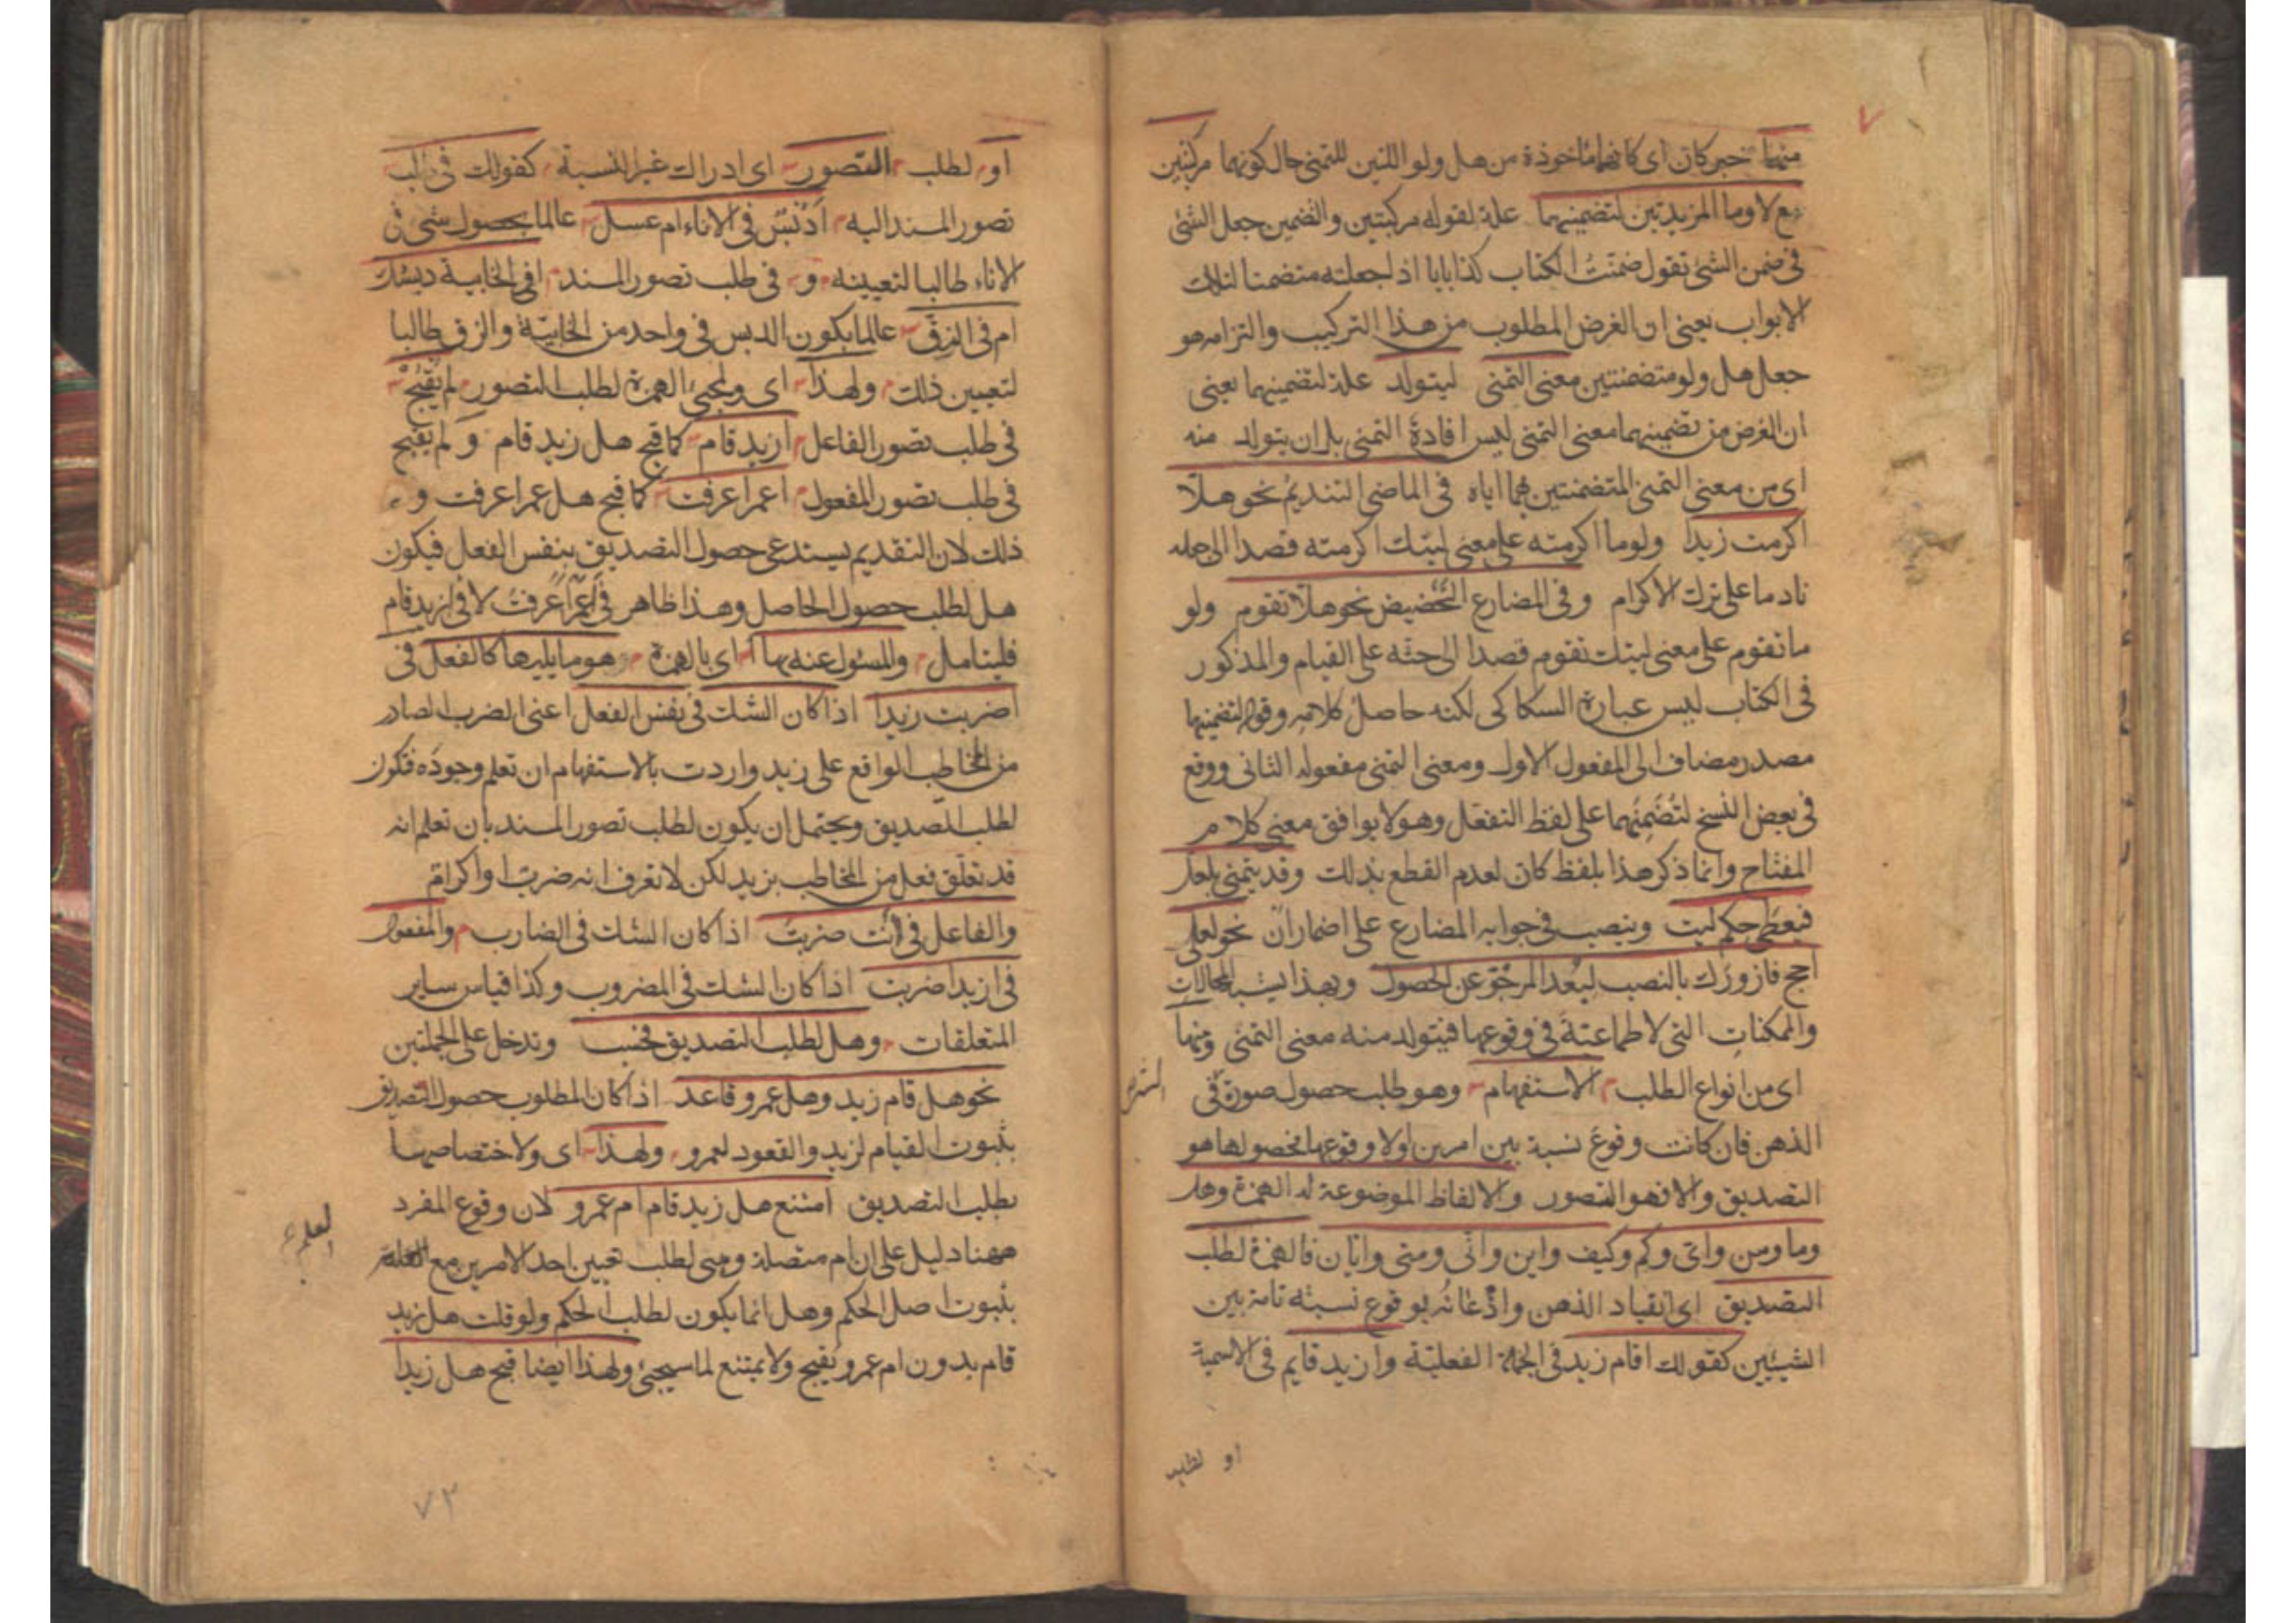 ٧
منهما خبر كان اى كانهما ماخوذة من هل ولو اللتين للتمنى حال كونهما مركبتين
مع لا وما المزيدتين لتضمينهما علة لقوله مركبتين والتضمين جعل الشئ
فى ضمن الشئ تقول ضمنت الكتاب كذا بابا اذ اجعلته متضمنا لتلك
الابواب يعنى ان الغرض المطلوب من هذا التركيب والتزامه هو
جعل هل ولو متضمنتين معنى التمنى ليتولد علة لتضمينهما يعنى
ان الغرض من تضمينهما معنى التمنى ليس افادة التمنى بل ان يتولد منه
اى من معنى التمنى المتضمنتين هما اياه فى الماضى التنديم نحو هلّا
اكرمت زيدا ولوما اكرمته على معنى ليتك اكرمته قصدا الى جعله
نادما على ترك الاكرام وفى المضارع التحضيض نحو هلا تقوم ولو
ما تقوم على معنى ليتك تقوم قصدا الى حثه على القيام والمذكور
فى الكتاب ليس عبارة السكاكى لكنه حاصل كلامه وقوله لتضمينهما
مصدر مضاف الى المفعول الاول ومعنى التمنى مفعوله الثانى ووقع
فى بعض النسخ لتضمنهما على لفظ التفعل وهو لا يوافق معنى كلام
المفتاح وانما ذكر هذا بلفظ كان لعدم القطع بذلك وقد يتمنى بلعل
فيعطى حكم ليت وينصب فى جوابه المضارع على اضمار ان نحو لعلى
احج فازورك بالنصب لبعد المرجو عن الحصول وبهذا يشبه المحالات
والممكنات التى لا طماعية فى وقوعها فيتولد منه معنى التمنى ومنها
اى من انواع الطلب الاستفهام وهو طلب حصول صورة فى
الذهن فان كانت وقوع نسبة بين امرين اولا وقوعها فحصولها هو
التصديق والا فهو التصور والالفاظ الموضوعة له الهمزة وهل
وما ومن واى وكم وكيف واين وانى ومتى وايان فالهمزة لطلب
التصديق اى انقياد الذهن واذعانه بوقوع نسبة تامة بين
الشيئين كقولك اقام زيد فى الجملة الفعلية وازيد قايم فى الاسمية
او لطلب
او لطلب التصور اى ادراك غير النسبة كقولك فى طلب
تصور المسند اليه أدبس فى الاناء ام عسل عالما بحصول شئ فى
الاناء طالبا لتعيينه و فى طلب تصور المسند افى الخابية دبسك
ام فى الزق عالما بكون الدبس فى واحد من الخابية والزق طالبا
لتعيين ذلك ولهذا اى ولمجئ الهمزة لطلب التصور لم يقبح
فى طلب تصور الفاعل ازيد قام كما قبح هل زيد قام و لم يقبح
فى طلب تصور المفعول اعمرا عرفت كما قبح هل عمرا عرفت و
ذلك لان التقديم يستدعى حصول التصديق بنفس الفعل فيكون
هل لطلب حصول الحاصل وهذا ظاهر فى أعمرا عرفت لا فى ازيد قام
فليتامل والمسئول عنه بها اى بالهمزة هو ما يليها كالفعل فى
اضربت زيدا اذا كان الشك فى نفس الفعل اعنى الضرب الصادر
من المخاطب الواقع على زيد واردت بالاستفهام ان تعلم وجوده فتكون
لطلب التصديق ويحتمل ان يكون لطلب تصور المسند بان تعلم انه
قد تعلق فعل من المخاطب بزيد لكن لا تعرف انه ضرب او اكرام
والفاعل فى أنت ضربت اذا كان الشك فى الضارب والمفعول
فى ازيدا ضربت اذا كان الشك فى المضروب وكذا قياس ساير
المتعلقات وهل لطلب التصديق فحسب وتدخل على الجملتين
نحو هل قام زيد وهل عمرو قاعد اذا كان المطلوب حصول التصديق
بثبوت القيام لزيد والقعود لعمرو ولهذا اى ولاختصاصها
بطلب التصديق امتنع هل زيد قام ام عمرو لان وقوع المفرد
ههنا دليل على ان ام متصلة وهى لطلب تعيين احد الامرين مع العلم
بثبوت اصل الحكم وهل انما يكون لطلب الحكم ولو قلت هل زيد
قام بدون ام عمرو يقبح ولا يمتنع لما سيجئ ولهذا ايضا قبح هل زيدا
العلم
٧٣